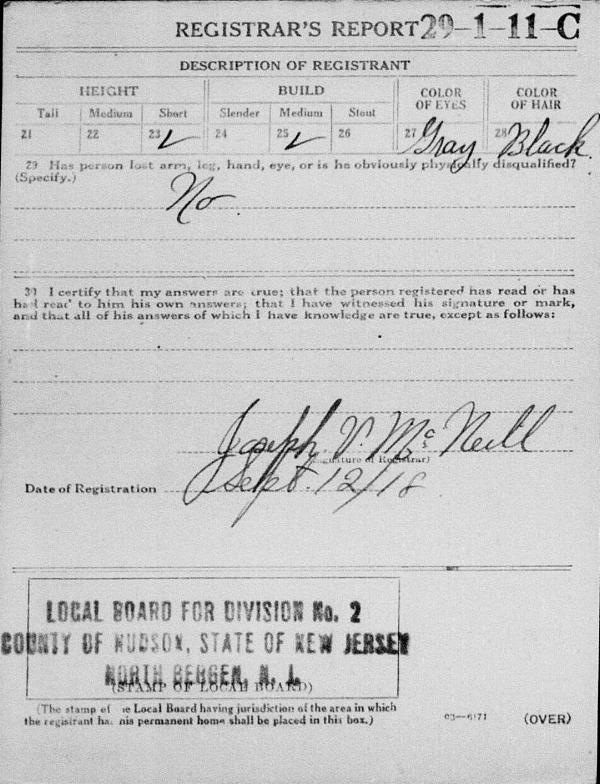 REGISTRAR'S REPORT 29-1-11-C
DESCRIPTION OF REGISTRANT
HEIGHT BUILD COLOR OF EYES COLOR OF HAIR
Tall Medium Short Slender Medium Stout
21 22 23 ✓ 24 25 ✓ 26 27 Gray 28 Black
29 Has person lost arm, leg, hand, eye, or is he obviously physically disqualified?
(Specify.)
No
30 I certify that my answers are true; that the person registered has read or has
had read to him his own answers; that I have witnessed his signature or mark,
and that all of his answers of which I have knowledge are true, except as follows:
Joseph V. McNeill
(Signature of Registrar)
Date of Registration Sept. 12/18
LOCAL BOARD FOR DIVISION No. 2
COUNTY OF HUDSON, STATE OF NEW JERSEY
NORTH BERGEN, N. J.
(STAMP OF LOCAL BOARD)
(The stamp of the Local Board having jurisdiction of the area in which
the registrant has his permanent home shall be placed in this box.)
03—6171 (OVER)